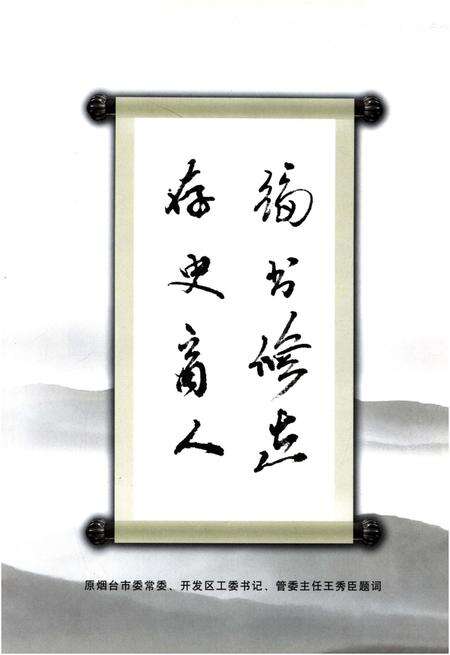 编书修志
存史育人
原烟台市委常委、开发区工委书记、管委主任王秀臣题词